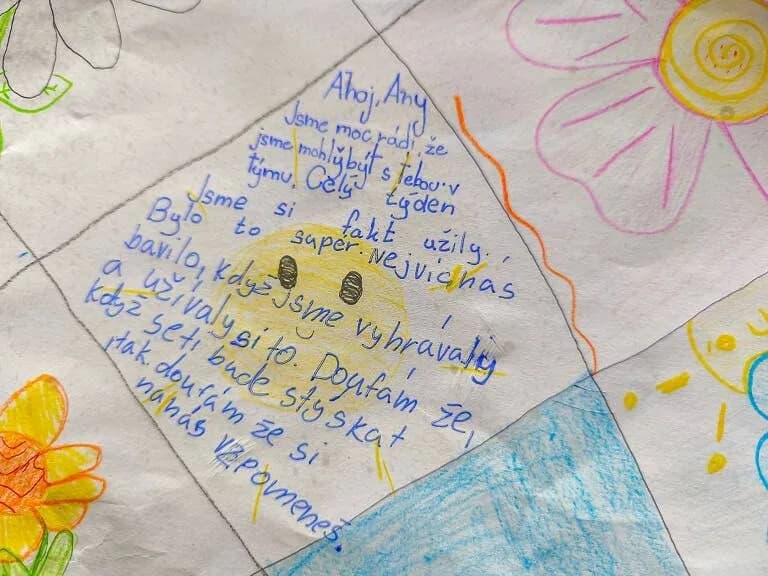 Ahoj, Any
Jsme moc rádi, že
jsme mohly být s tebou v
týmu. Celý týden
Jsme si fakt užily.
Bylo to super. Nejvíc nás
bavilo, když jsme vyhrávaly
a užívaly si to. Doufám že,
když se ti bude stýskat
, tak doufám že si
na nás vzpomeneš.